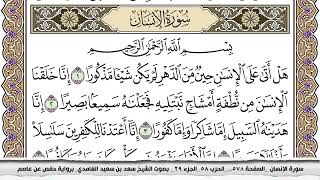 سورة الإنسان
بسم الله الرحمن الرحيم
هل أتى على الإنسان حين من الدهر لم يكن شيئا مذكورا ١ إنا خلقنا
الإنسان من نطفة أمشاج نبتليه فجعلناه سميعا بصيرا ٢ إنا
هديناه السبيل إما شاكرا وإما كفورا ٣ إنا أعتدنا للكافرين سلاسلا
سورة الإنسان _الصفحة ٥٧٨_ الحزب ٥٨_ الجزء ٢٩ بصوت الشيخ سعد بن سعيد الغامدي برواية حفص عن عاصم